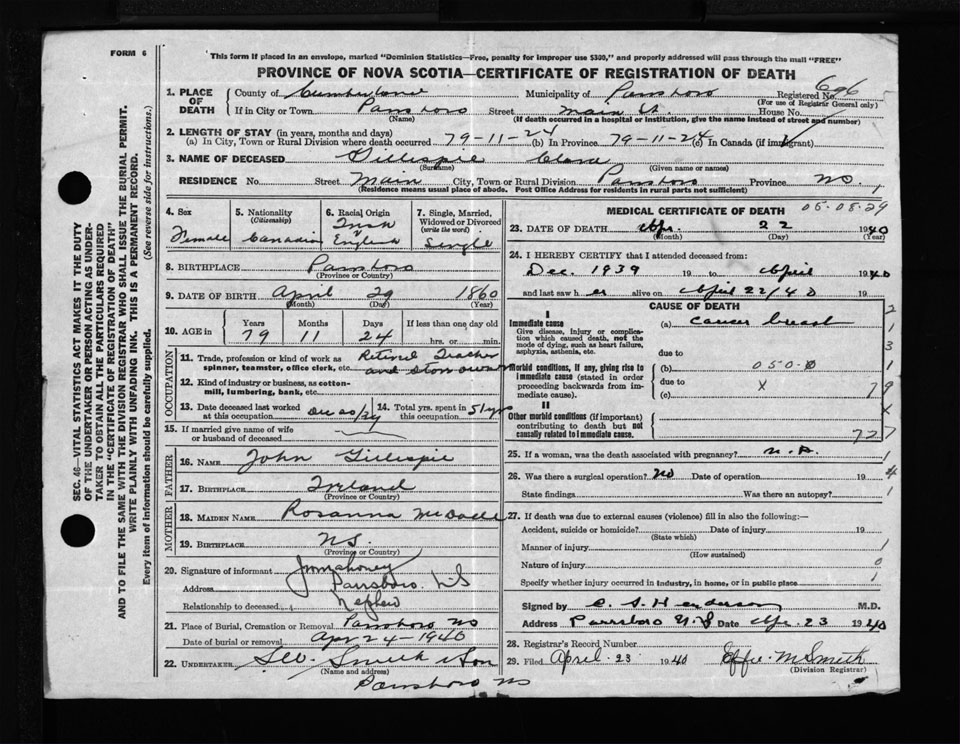 FORM 6
This form if placed in an envelope, marked "Dominion Statistics—Free, penalty for improper use $300," and properly addressed will pass through the mail "FREE"
PROVINCE OF NOVA SCOTIA—CERTIFICATE OF REGISTRATION OF DEATH
SEC. 46—VITAL STATISTICS ACT MAKES IT THE DUTY
OF THE UNDERTAKER OR PERSON ACTING AS UNDER-
TAKER TO OBTAIN ALL THE PARTICULARS REQUIRED
IN THE "CERTIFICATE OF REGISTRATION OF DEATH"
AND TO FILE THE SAME WITH THE DIVISION REGISTRAR WHO SHALL ISSUE THE BURIAL PERMIT.
WRITE PLAINLY WITH UNFADING INK. THIS IS A PERMANENT RECORD.
Every item of information should be carefully supplied. (See reverse side for instructions.)
1. PLACE OF DEATH County of Cumberland Municipality of Parrsboro Registered No. 696
(For use of Registrar General only)
If in City or Town Parrsboro Street Main St. House No.
(Name) (If death occurred in a hospital or institution, give the name instead of street and number)
2. LENGTH OF STAY (in years, months and days)
(a) In City, Town or Rural Division where death occurred 79-11-24 (b) In Province 79-11-24 (c) In Canada (if immigrant)
3. NAME OF DECEASED Gillespie Clara
(Surname) (Given name or names)
RESIDENCE No. Street Main City, Town or Rural Division Parrsboro Province N.S.
(Residence means usual place of abode. Post Office Address for residents in rural parts not sufficient)
4. Sex Female
5. Nationality (Citizenship) Canadian
6. Racial Origin Irish v English
7. Single, Married, Widowed or Divorced (write the word) Single
8. BIRTHPLACE Parrsboro
(Province or Country)
9. DATE OF BIRTH April 29 1860
(Month) (Day) (Year)
10. AGE in Years Months Days If less than one day old
79 11 24 hrs. or min.
OCCUPATION
11. Trade, profession or kind of work as spinner, teamster, office clerk, etc. Retired Teacher and store owner
12. Kind of industry or business, as cotton-mill, lumbering, bank, etc.
13. Date deceased last worked at this occupation 14. Total yrs. spent in this occupation 51 yrs
15. If married give name of wife or husband of deceased
FATHER
16. NAME John Gillespie
17. BIRTHPLACE Ireland
(Province or Country)
MOTHER
18. MAIDEN NAME Rosanna
19. BIRTHPLACE N.S.
(Province or Country)
20. Signature of informant J Mahoney
Address Parrsboro. N.S
Relationship to deceased Nephew
21. Place of Burial, Cremation or Removal Parrsboro NS
Date of burial or removal Apr 24-1940
22. UNDERTAKER Smith & Son
(Name and address)
Parrsboro NS
MEDICAL CERTIFICATE OF DEATH 05-08-29
23. DATE OF DEATH Apr. 22 1940
(Month) (Day) (Year)
24. I HEREBY CERTIFY that I attended deceased from:
Dec. 1939 19 to April 1940
and last saw her alive on April 22/40 19
CAUSE OF DEATH
I
Immediate cause (a) cancer breast
Give disease, injury or complication which caused death, not the mode of dying, such as heart failure, asphyxia, asthenia, etc.
due to
Morbid conditions, if any, giving rise to immediate cause (stated in order proceeding backwards from immediate cause). (b) 050-0
due to X
(c)
II
Other morbid conditions (if important) contributing to death but not causally related to immediate cause.
727
25. If a woman, was the death associated with pregnancy? n.a.
26. Was there a surgical operation? No Date of operation 19
State findings Was there an autopsy?
27. If death was due to external causes (violence) fill in also the following:—
Accident, suicide or homicide? Date of injury 19
(State which)
Manner of injury
(How sustained)
Nature of injury
Specify whether injury occurred in industry, in home, or in public place
Signed by C. S. Henderson M.D.
Address Parrsboro N.S Date Apr. 23 1940
28. Registrar's Record Number
29. Filed April 23 1940 Effie M Smith
(Division Registrar)